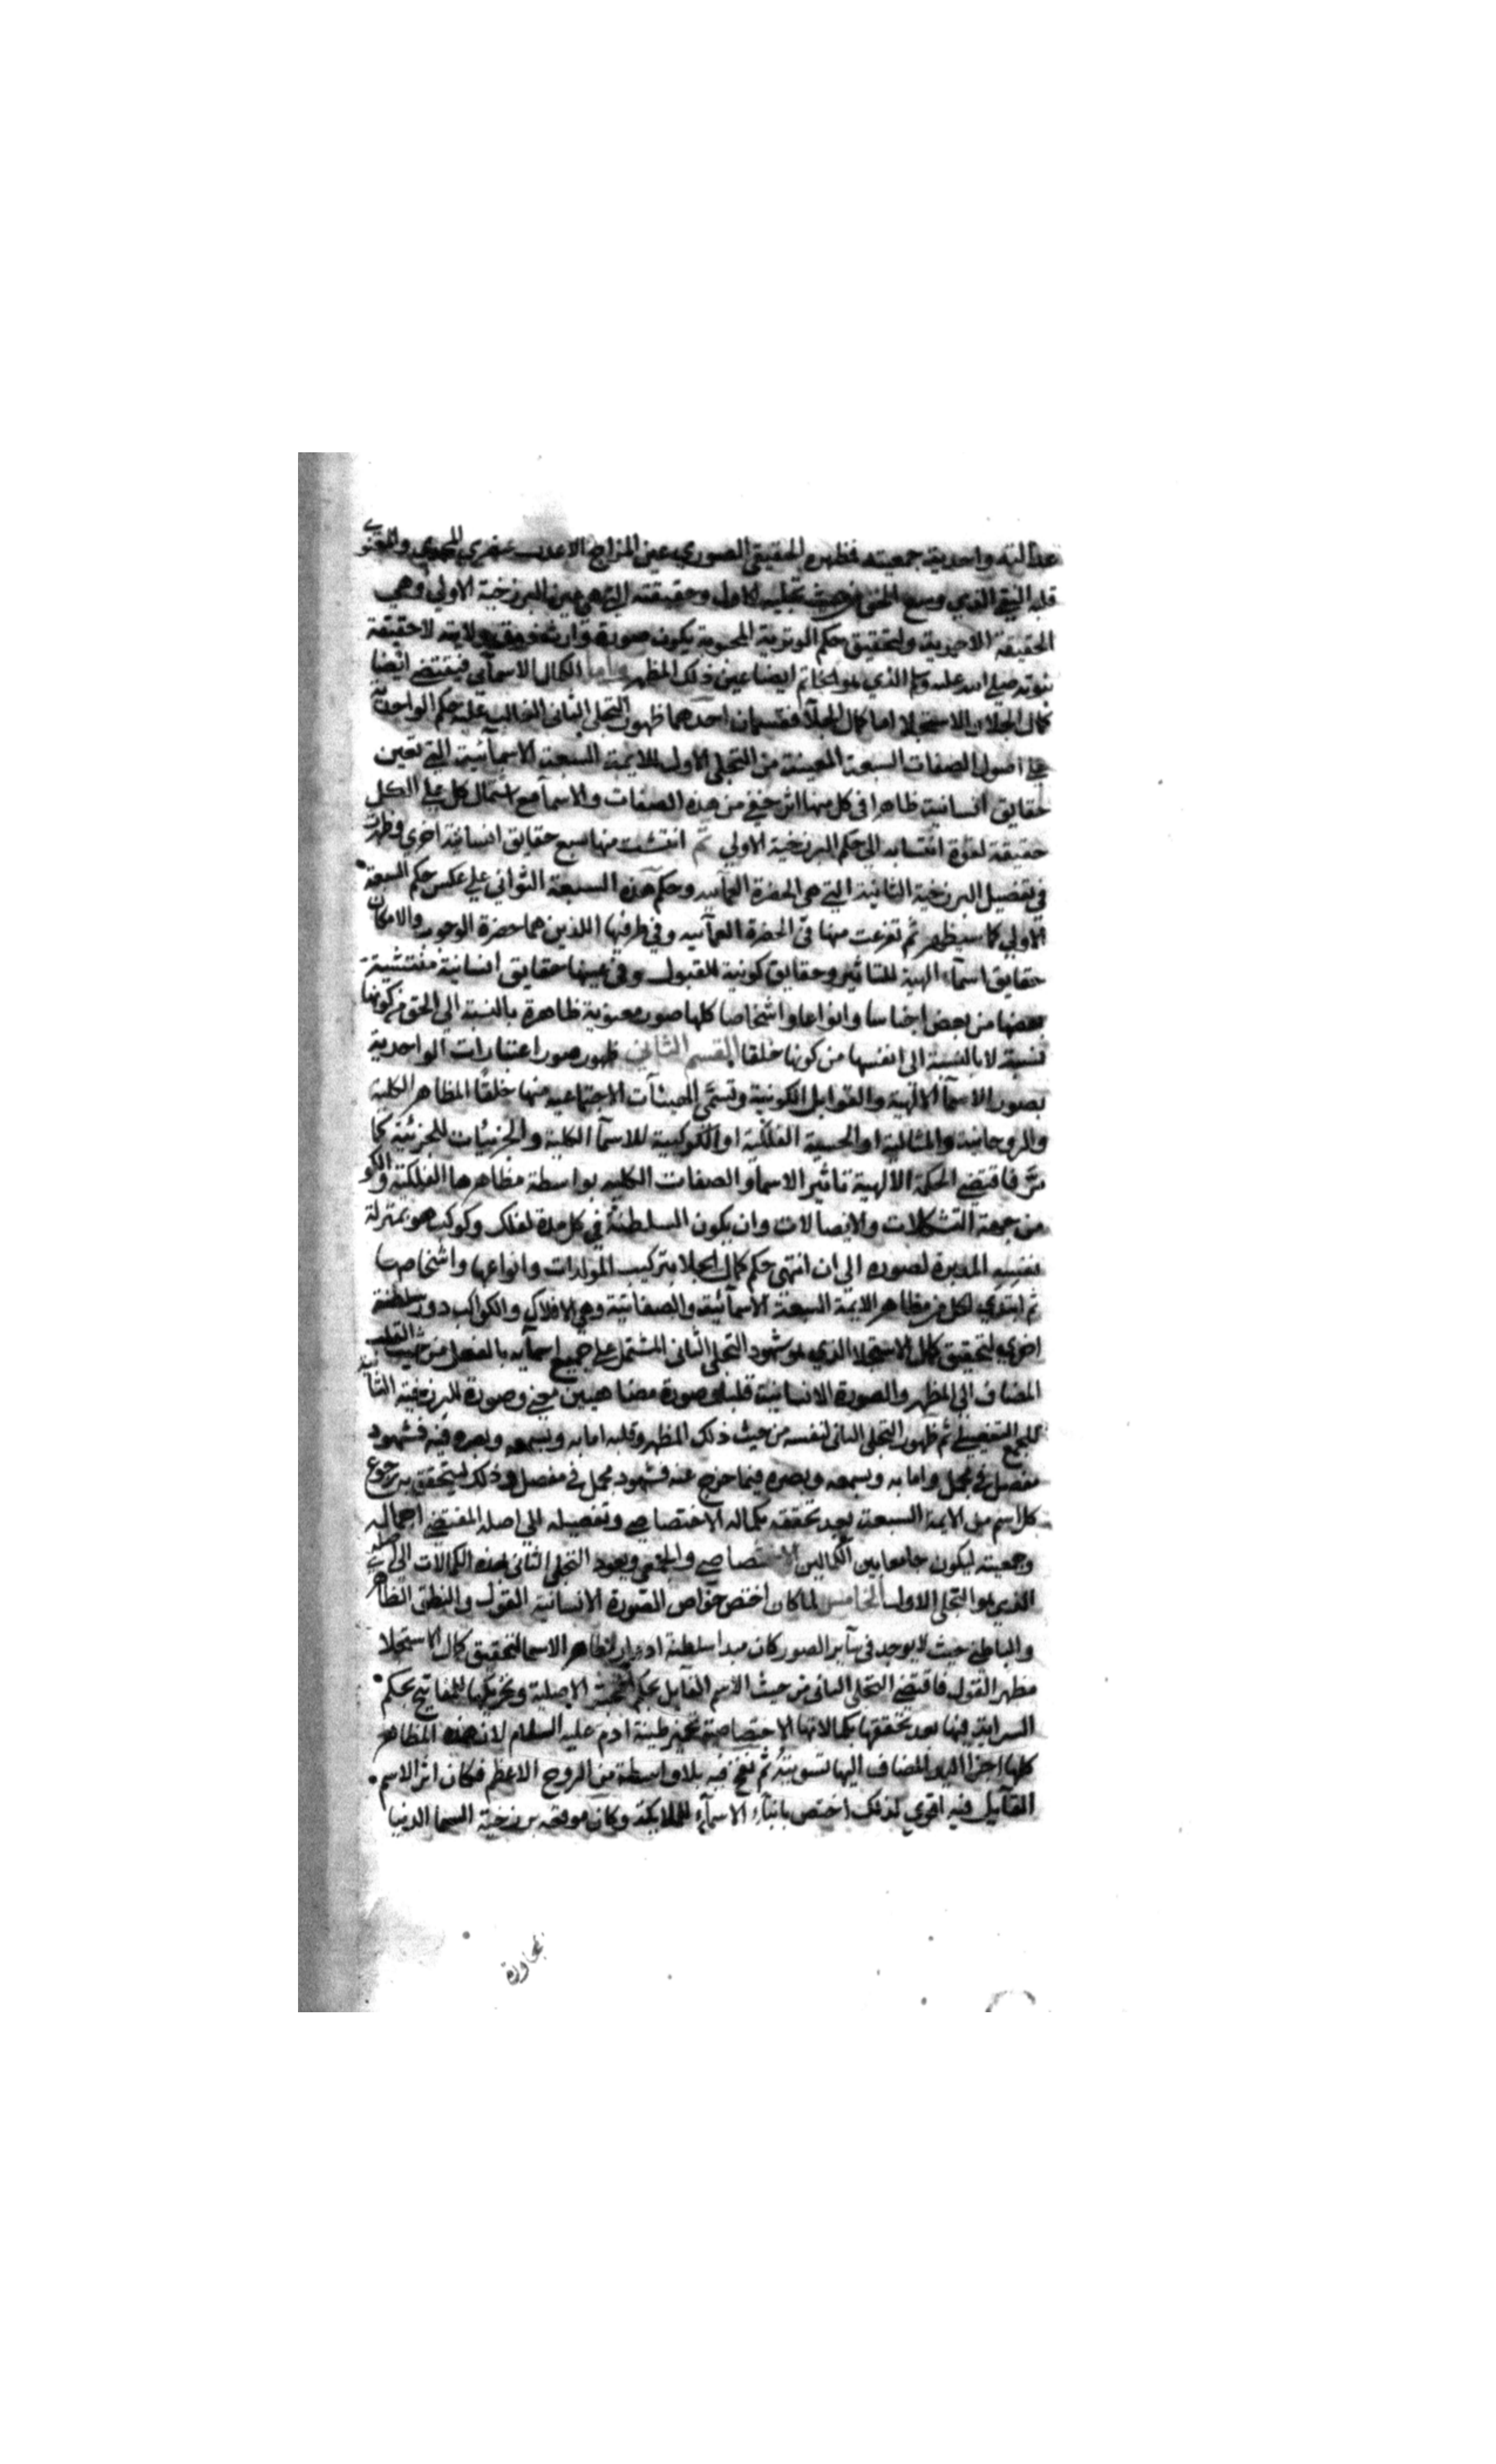 عدالته واحدية جمعيته فمظهره الحقيقي الصوري عين المزاج الاعدل عنصري المحمدي والمعنوي
قلبه التقي النقي وسع الحق من حيث تجليه الاول وحقيقته التي هي عين البرزخية الاولي وهي
الحقيقة الاحدية ولتحقيق حكم الوترية المحبوبة يكون صورة وارث ولايته لا حقيقة
نبوته صلي الله عليه وسلم الذي هو الخاتم ايضا عين ذلك المظهر واما الكمال الاسمآئي فيقتضي ايضا
كمال الجلا والاستجلا اما كمال الجلآ فقسمان احدهما ظهور التجلي الثاني الغالب عليه حكم الواحدية
علي اصول الصفات السبعة المعينة من التجلي الاول للايمة السبعة الاسمآئية التي تعين
حقايق انسانية ظاهرا في كل منها اثر خفي من هذه الصفات والاسمآ مع اشتمال كل علي الكل
حقيقة لقوة انتسابه الي حكم البرزخية الاولي ثم انتشت منها سبع حقايق انسانية اخري وظهرت
في تفصيل البرزخية الثانية التي هي الحضرة العمآئيه وحكم هذه السبعة الثواني علي عكس حكم السبعة
الاولي كما سيظهر ثم تفرعت منها في الحضرة العمآئيه وفي طرفيها اللذين هما حضرة الوجوب والامكان
حقايق اسمآء الهية للتاثير وحقايق كونية للقبول وفي بينها حقايق انسانية منتشية
بعضها من بعض اجناسا وانواعا واشخاصا كلها صور معنوية ظاهرة بالنسبة الي الحق من كونها
نسبة لا بالنسبة الي انفسها من كونها خلقا القسم الثاني ظهور صور اعتبارات الواحدية
بصور الاسمآ الالهية والقوابل الكونية وتسمي الهيئآت الاجتماعيه منها خلقا المظاهر الكلية
والروحانية والمثالية او الحسية الفلكية او الكوكبية للاسمآ الكلية والجزئيات للجزئية كما
مر فاقتضي الحكمة الالهية تاثير الاسمآ والصفات الكليه بواسطة مظاهرها الفلكية والكو
من جهة التشكلات والاتصالات وان يكون السلطنة في كل مدة لفلك وكوكب هو بمنزلة
نفسه المدبرة لصوره الي ان انتهي حكم كمال الجلا بتركيب المولدات وانواعها واشخاصها
ثم ابتدي لكل من مظاهر الايمة السبعة الاسمآئية والصفاتية وهي الافلاك والكواكب دور سلطنة
اخري لتحقيق كمال الاستجلا الذي هو شهود التجلي الثاني المشتمل علي جميع اسمآيه بالفعل من حيث القلب
المضاف الي المظهر والصورة الانسانية قلبا وصورة مضاهيين معني وصورة للبرزخية الثانية
للجمع التفصيلي ثم ظهور التجلي الثاني لنفسه من حيث ذلك المظهر وقلبه اما به وبسمعه وبصره فيه فشهود
مفصل في مجمل واما به وبسمعه وبصره فيما خرج عنه فشهود مجمل في مفصل وذلك ليتحقق به رجوع
كل اسم من الايمة السبعة بعد تحققه بكماله الاختصاصي وتفصيله الي اصله المقتضي اجماليه
وجمعيته ليكون جامعا بين الكمالين الاختصاصي والجمعي ويعود التجلي الثاني بهذه الكمالات الي اصله
الذي هو التجلي الاول الخامس لما كان اختص خواص الصورة الانسانية القول والنطق الظاهر
والباطن حيث لا يوجد في سآير الصور كان مبدا سلطنة ادوار مظاهر الاسما لتحقيق كمال الاستجلا
مظهر القول فاقتضي التجلي الثاني من حيث الاسم القآيل بحكم المحبة الاصلية وتحريكها للمفاتيح بحكم
السراية فيها بعد تحققها بكمالاتها الاختصاصية تخمير طينة ادم عليه السلام لان هذه المظاهر
كلها اجزا اليد المضاف اليها تسويته ثم نفخ فيه بلا واسطة من الروح الاعظم فكان اثر الاسم
القآيل فيه اقوي لذلك اختص بانبآء الاسمآء للملايكة وكان موقعه برزخية السما الدنيا